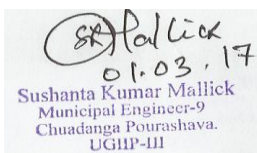 SKMallick
01.03.17
Sushanta Kumar Mallick
Municipal Engineer-9
Chuadanga Pourashava.
UGIIP-III